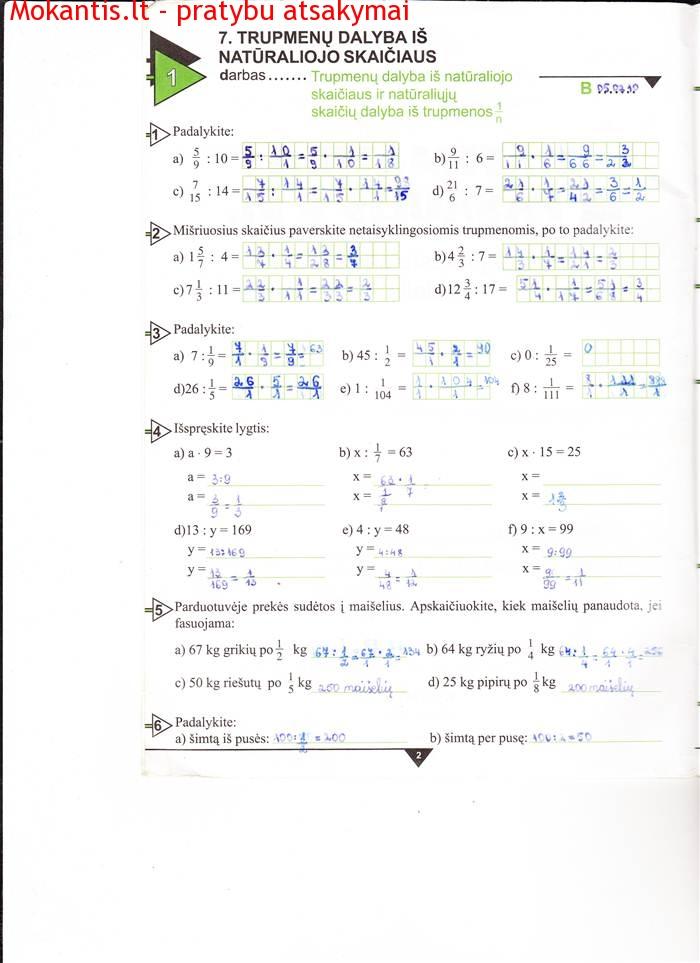 Mokantis.lt - pratybu atsakymai
7. TRUPMENŲ DALYBA IŠ
NATŪRALIOJO SKAIČIAUS
1 darbas....... Trupmenų dalyba iš natūraliojo
skaičiaus ir natūraliųjų
skaičių dalyba iš trupmenos 1/n
B
1 Padalykite:
a) 5/9 : 10 = 5/9 : 10/1 = 5/9 · 1/10 = 1/18 b) 9/11 : 6 = 9/11 · 1/6 = 9/66 = 3/22
c) 7/15 : 14 = d) 21/6 : 7 = 21/6 · 1/7 = 21/42 = 3/6 = 1/2
2 Mišriuosius skaičius paverskite netaisyklingosiomis trupmenomis, po to padalykite:
a) 1 5/7 : 4 = 13/7 · 1/4 = 13/28 = 3/7 b) 4 2/3 : 7 = 14/3 · 1/7 = 14/21 = 2/3
c) 7 1/3 : 11 = 22/3 · 1/11 = 22/33 = 2/3 d) 12 3/4 : 17 = 51/4 · 1/17 = 51/68 = 3/4
3 Padalykite:
a) 7 : 1/9 = 7/1 · 1/9 = 7/9 = 63 b) 45 : 1/2 = 45/1 · 2/1 = 90 c) 0 : 1/25 = 0
d) 26 : 1/5 = 26/1 · 5/1 = 26/1 e) 1 : 1/104 = 1/1 · 104/1 = 104 f) 8 : 1/111 = 8/1 · 111/1 = 888/1
4 Išspręskite lygtis:
a) a · 9 = 3 b) x : 1/7 = 63 c) x · 15 = 25
a = 3:9 x = 63 · 1/7 x =
a = 3/9 = 1/3 x = x =
d) 13 : y = 169 e) 4 : y = 48 f) 9 : x = 99
y = 13:169 y = 4:48 x = 9:99
y = 13/169 = 1/13 y = 4/48 = 1/12 x = 9/99 = 1/11
5 Parduotuvėje prekės sudėtos į maišelius. Apskaičiuokite, kiek maišelių panaudota, jei
fasuojama:
a) 67 kg grikių po 1/2 kg 67 : 1/2 = 67/1 · 2/1 = 134 b) 64 kg ryžių po 1/4 kg 64 : 1/4 = 64/1 · 4/1 = 256
c) 50 kg riešutų po 1/5 kg 250 maišelių d) 25 kg pipirų po 1/8 kg 200 maišelių
6 Padalykite:
a) šimtą iš pusės: 100 : 1/2 = 200 b) šimtą per pusę: 100 : 2 = 50
2